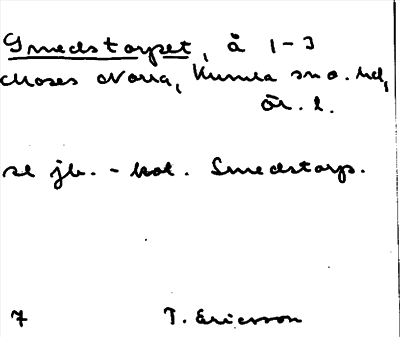 Smedstorpet, å 1-3
Mosås Norra, Kumla sn o. hd,
Ör. l.
se jb. - kat. Smedstorp.
7 T. Ericsson